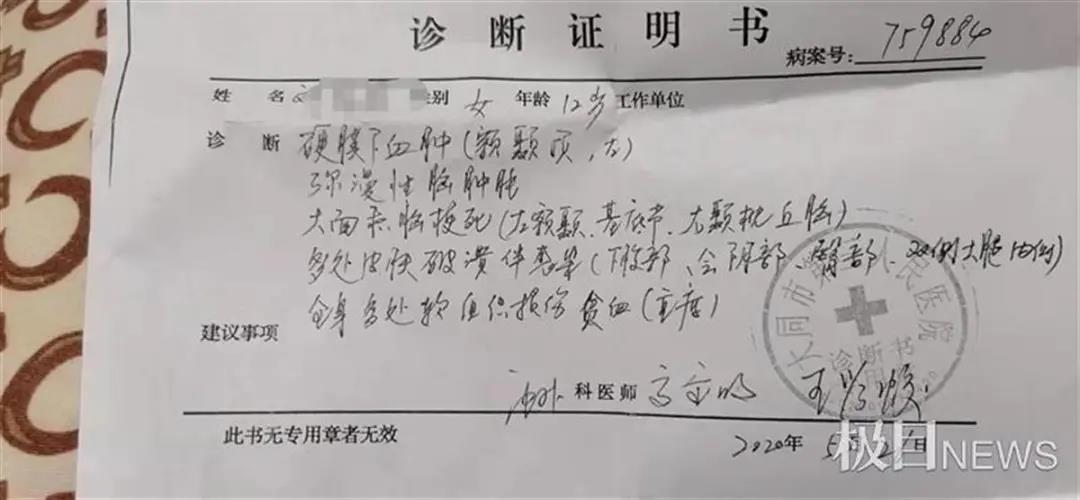 诊断证明书
病案号: 759884
姓名 性别 女 年龄 12岁 工作单位
诊断 硬膜下血肿(额颞顶、左)
弥漫性脑肿胀
大面积脑梗死(左额颞、基底节、右颞枕丘脑)
多处皮肤破溃伴感染(下腹部、会阴部、臀部、双侧大腿内侧)
全身多处软组织损伤 贫血(重度)
建议事项
大同市 人民医院
诊断书
科医师
此书无专用章者无效
2020年 5月 日
极目NEWS